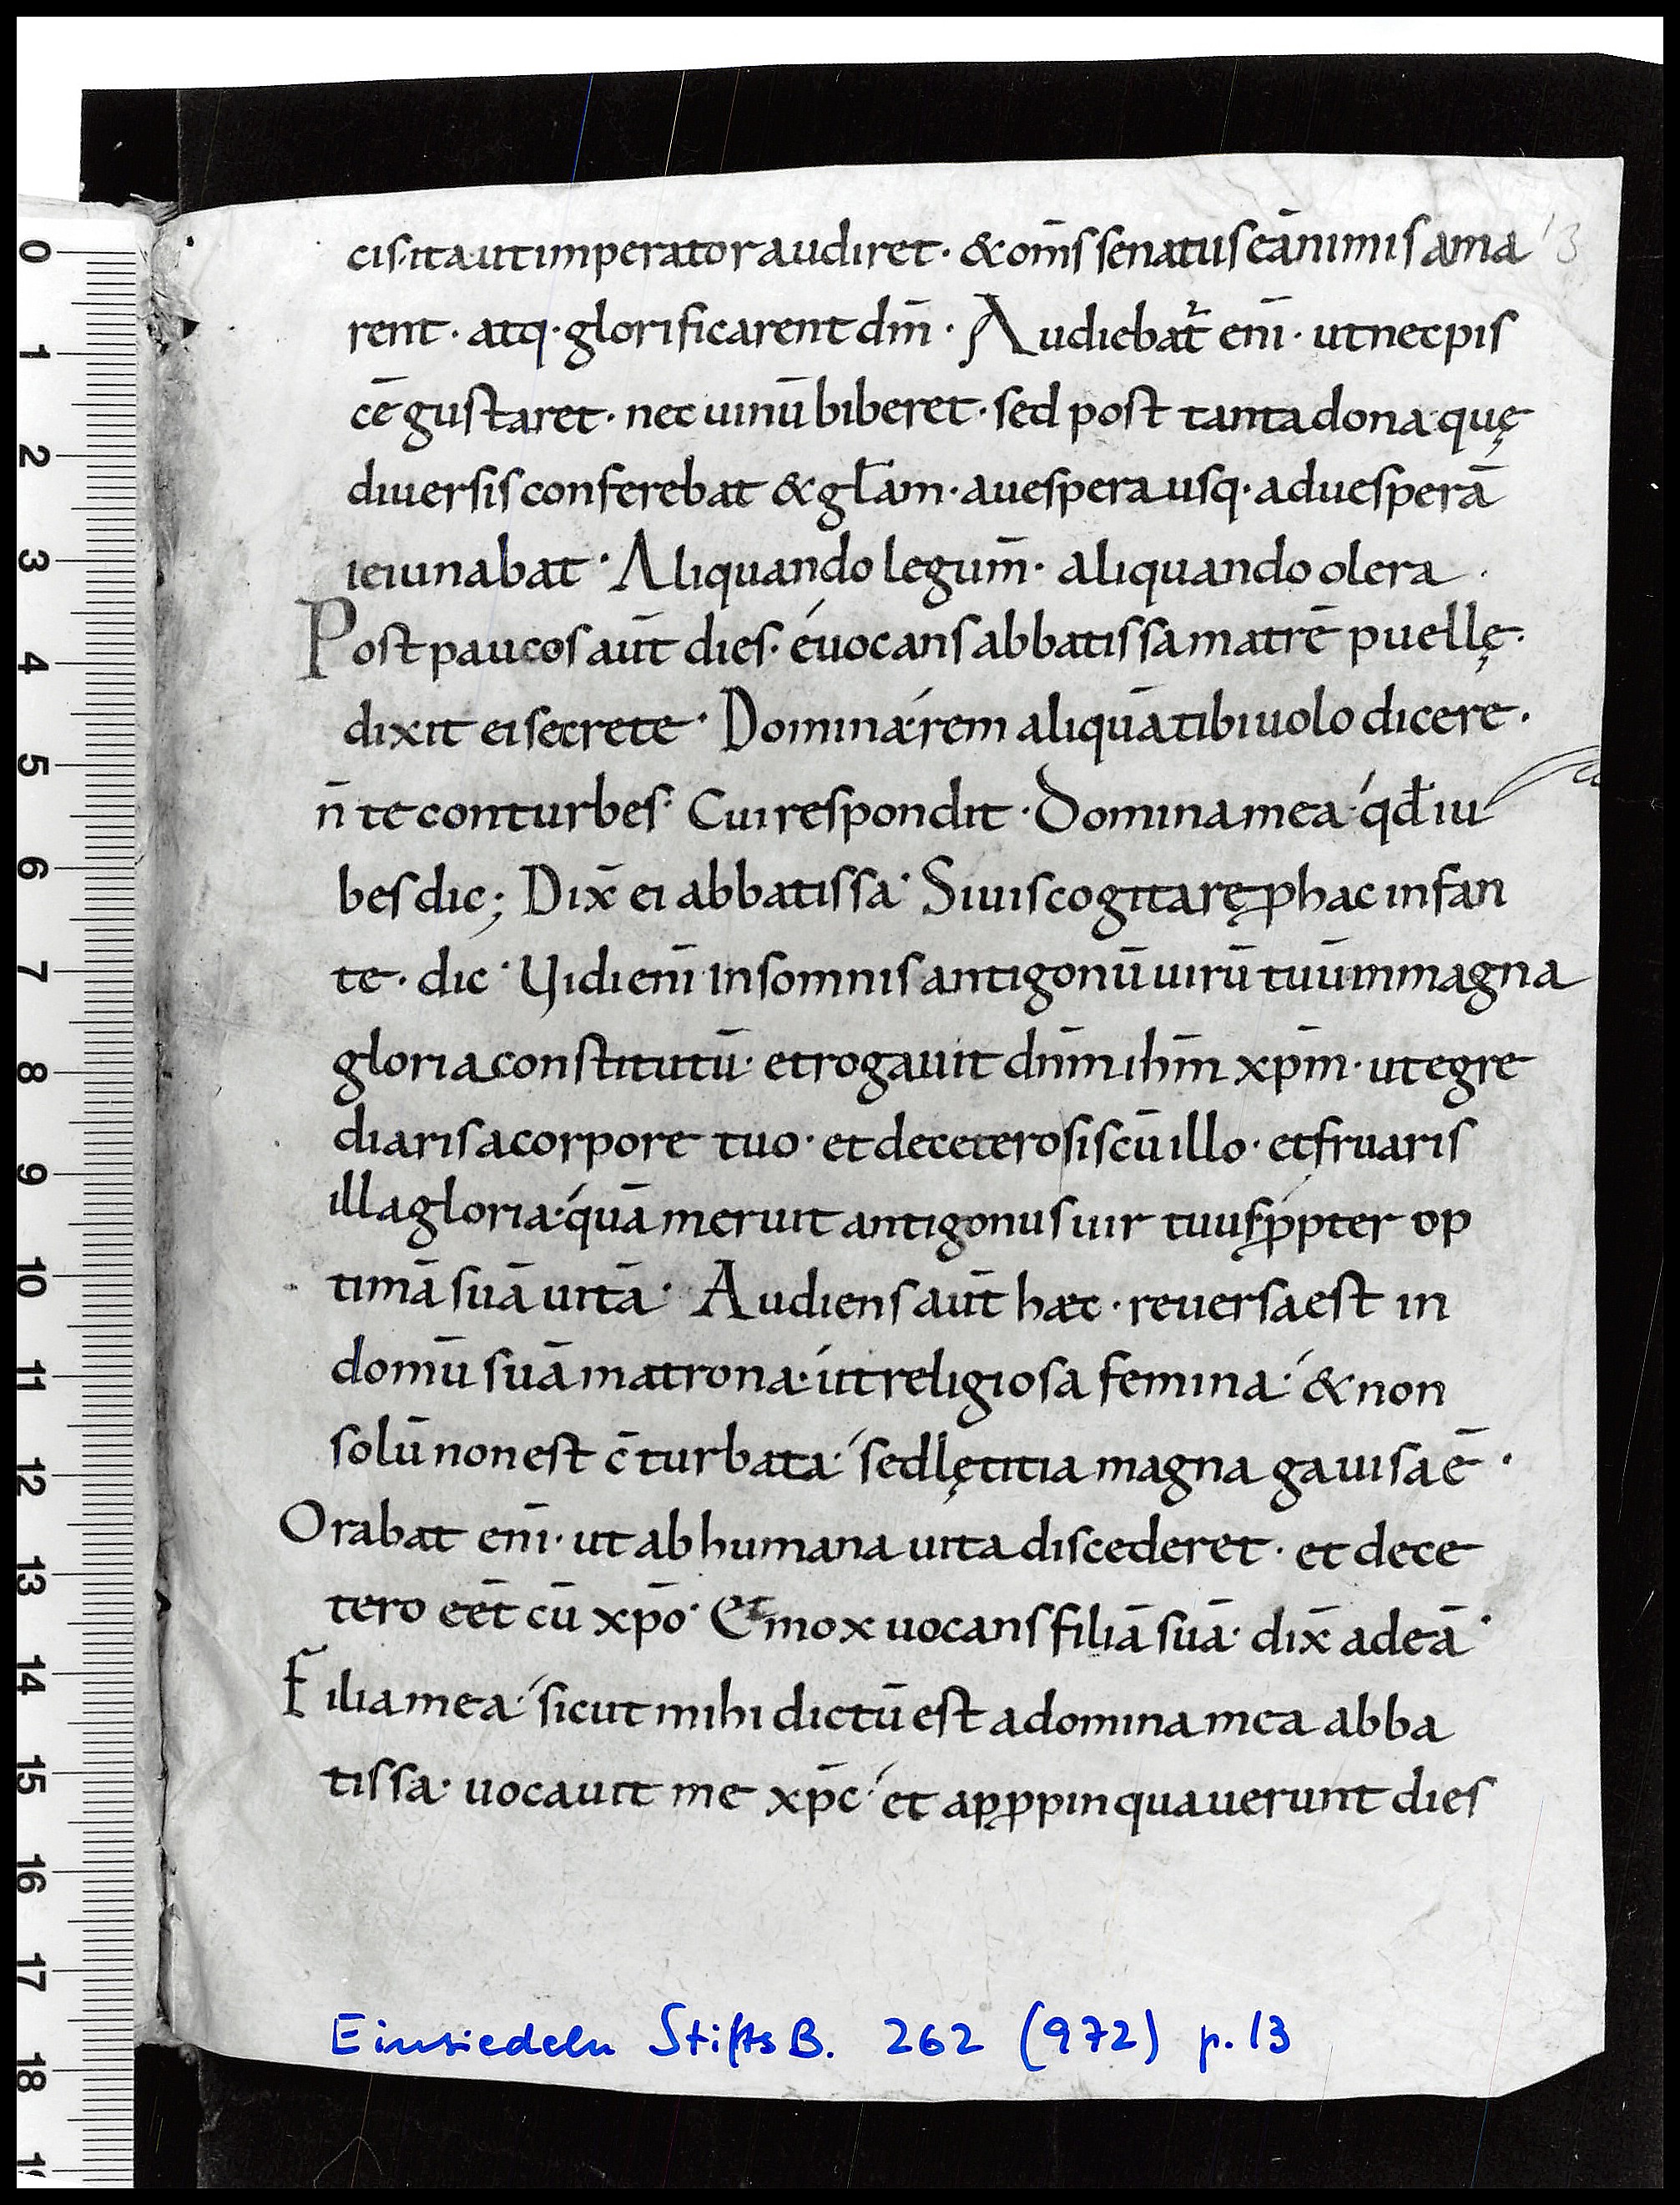 cis· ita ut imperator audiret· & om̄s senatus eā nimis ama
rent· atq· glorificarent dm̄· Audiebat᷑ enī· ut nec pis
cē gustaret· nec uinū biberet· sed post tanta dona quę
diuersis conferebat & głam· a uespera usq· ad uesperā
ieiunabat· Aliquando legum̄· aliquando olera·
Post paucos aūt dies· euocans abbatissa matrē puellę·
dixit ei secrete· Domina· rem aliquā tibi uolo dicere·
n̄ te conturbes· Cui respondit· Domina mea· qđ iu
bes dic; Dix̄ ei abbatissa· Si uis cogitarę ꝓ hac infan
te· dic· Vidi enī in somnis antigonū uirū tuū in magna
gloria constitutū· et rogauit dn̄m ihm̄ xpm̄· ut egre
diaris a corpore tuo· et de cetero sis cū illo· et fruaris
illa gloria· quā meruit antigonus uir tuus ꝓpter op
timā suā uitā· Audiens aūt haec· reuersa est in
domū suā matrona· ut religiosa femina· & non
solū non est c̄turbata· sed lętitia magna gauisa ē·
Orabat enī· ut ab humana uita discederet· et de ce
tero eēt cū xp̄o· Et mox uocans filiā suā· dix̄ ad eā·
Filia mea· sicut mihi dictū est a domina mea abba
tissa· uocauit me xp̄c· et apꝓpinquauerunt dies
13
Einsiedeln StiftsB. 262 (972) p. 13
0
1
2
3
4
5
6
7
8
9
10
11
12
13
14
15
16
17
18